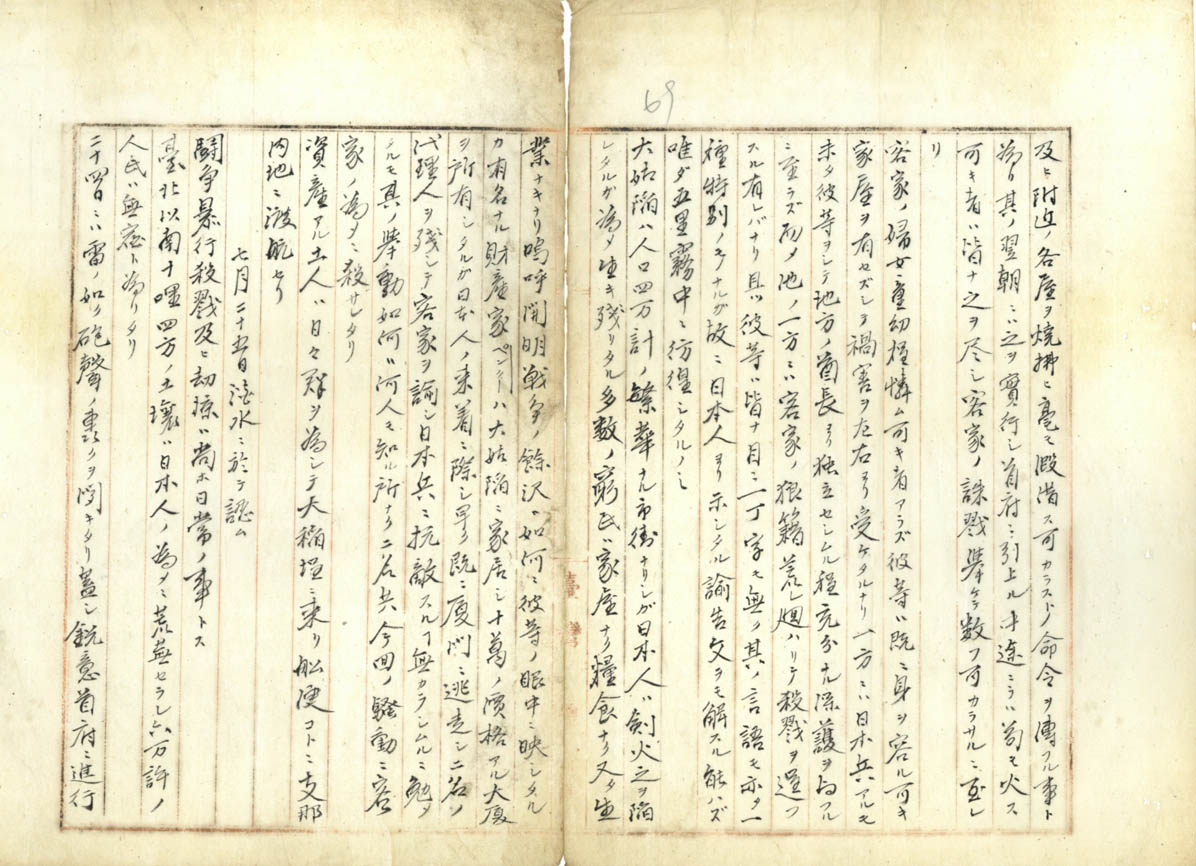 69
及ヒ附近ノ各屋ヲ焼拂ヒ毫モ假借ス可カラストノ命令ヲ傳フル事ト
為リ其ノ翌朝ニハ之ヲ實行シ首府ニ引上ル中途ニテハ苟モ火ス
可キ者ハ皆ナ之ヲ尽シ客家ノ誅戮挙ケテ数フ可カラサルニ至レ
リ
客家ノ婦女童幼程憐ム可キ者アラズ彼等ハ既ニ身ヲ容ル可キ
家屋ヲ有セズシテ禍害ヲ左右ヨリ受ケタルナリ一方ニハ日本兵アルモ
未タ彼等ヲシテ地方ノ酋長ヨリ独立セシムル程充分ナル保護ヲ与フル
ニ至ラズ而メ他ノ一方ニハ客家ノ狼籍荒レ廻ハリテ殺戮ヲ逞フ
スル有レバナリ且ツ彼等ハ皆ナ目ニ一丁字モ無ク其ノ言語モ亦タ一
種特別ノモノナルガ故ニ日本人ヨリ示シタル諭告文ヲモ解スル能ハズ
唯ダ五里霧中ニ彷徨シタルノミ
大姑陥ハ人口四万計ノ繁華ナル市街ナリシガ日本人ハ剣火之ヲ陥
レタルガ為メ生キ残リタル多数ノ窮民ハ家屋ナク糧食ナク又タ生
業ナキナリ嗚呼開明戦争ノ餘沢ハ如何ニ彼等ノ眼中ニ映シタル
カ有名ナル財産家ペンクーハ大姑陥ニ家居シ十萬ノ價格アル大厦
ヲ所有シタルガ日本人ノ来着ニ際シ早ク既ニ廈門ニ逃走シ二名ノ
代理人ヲ残シテ客家ヲ諭シ日本兵ニ抗敵スルヿ無カラシムルニ勉メ
タルモ其ノ挙動如何ハ何人モ知ル所ナリ二名共今回ノ騒動ニ客
家ノ為メニ殺サレタリ
資産アル土人ハ日々群ヲ為シテ大稲埕ニ来リ舩便コトニ支那
内地ニ渡航セリ
七月二十五日淡水ニ於テ認ム
闘争暴行殺戮及ヒ劫掠ハ尚ホ日常ノ事トス
臺北以南十哩四方ノ土壤ハ日本人ノ為メニ荒蕪セラレ六万許ノ
人民ハ無宿ト為リタリ
二十四日ニハ雷ノ如ク砲聲ノ轟クヲ聞キタリ蓋シ鋭意首府ニ進行